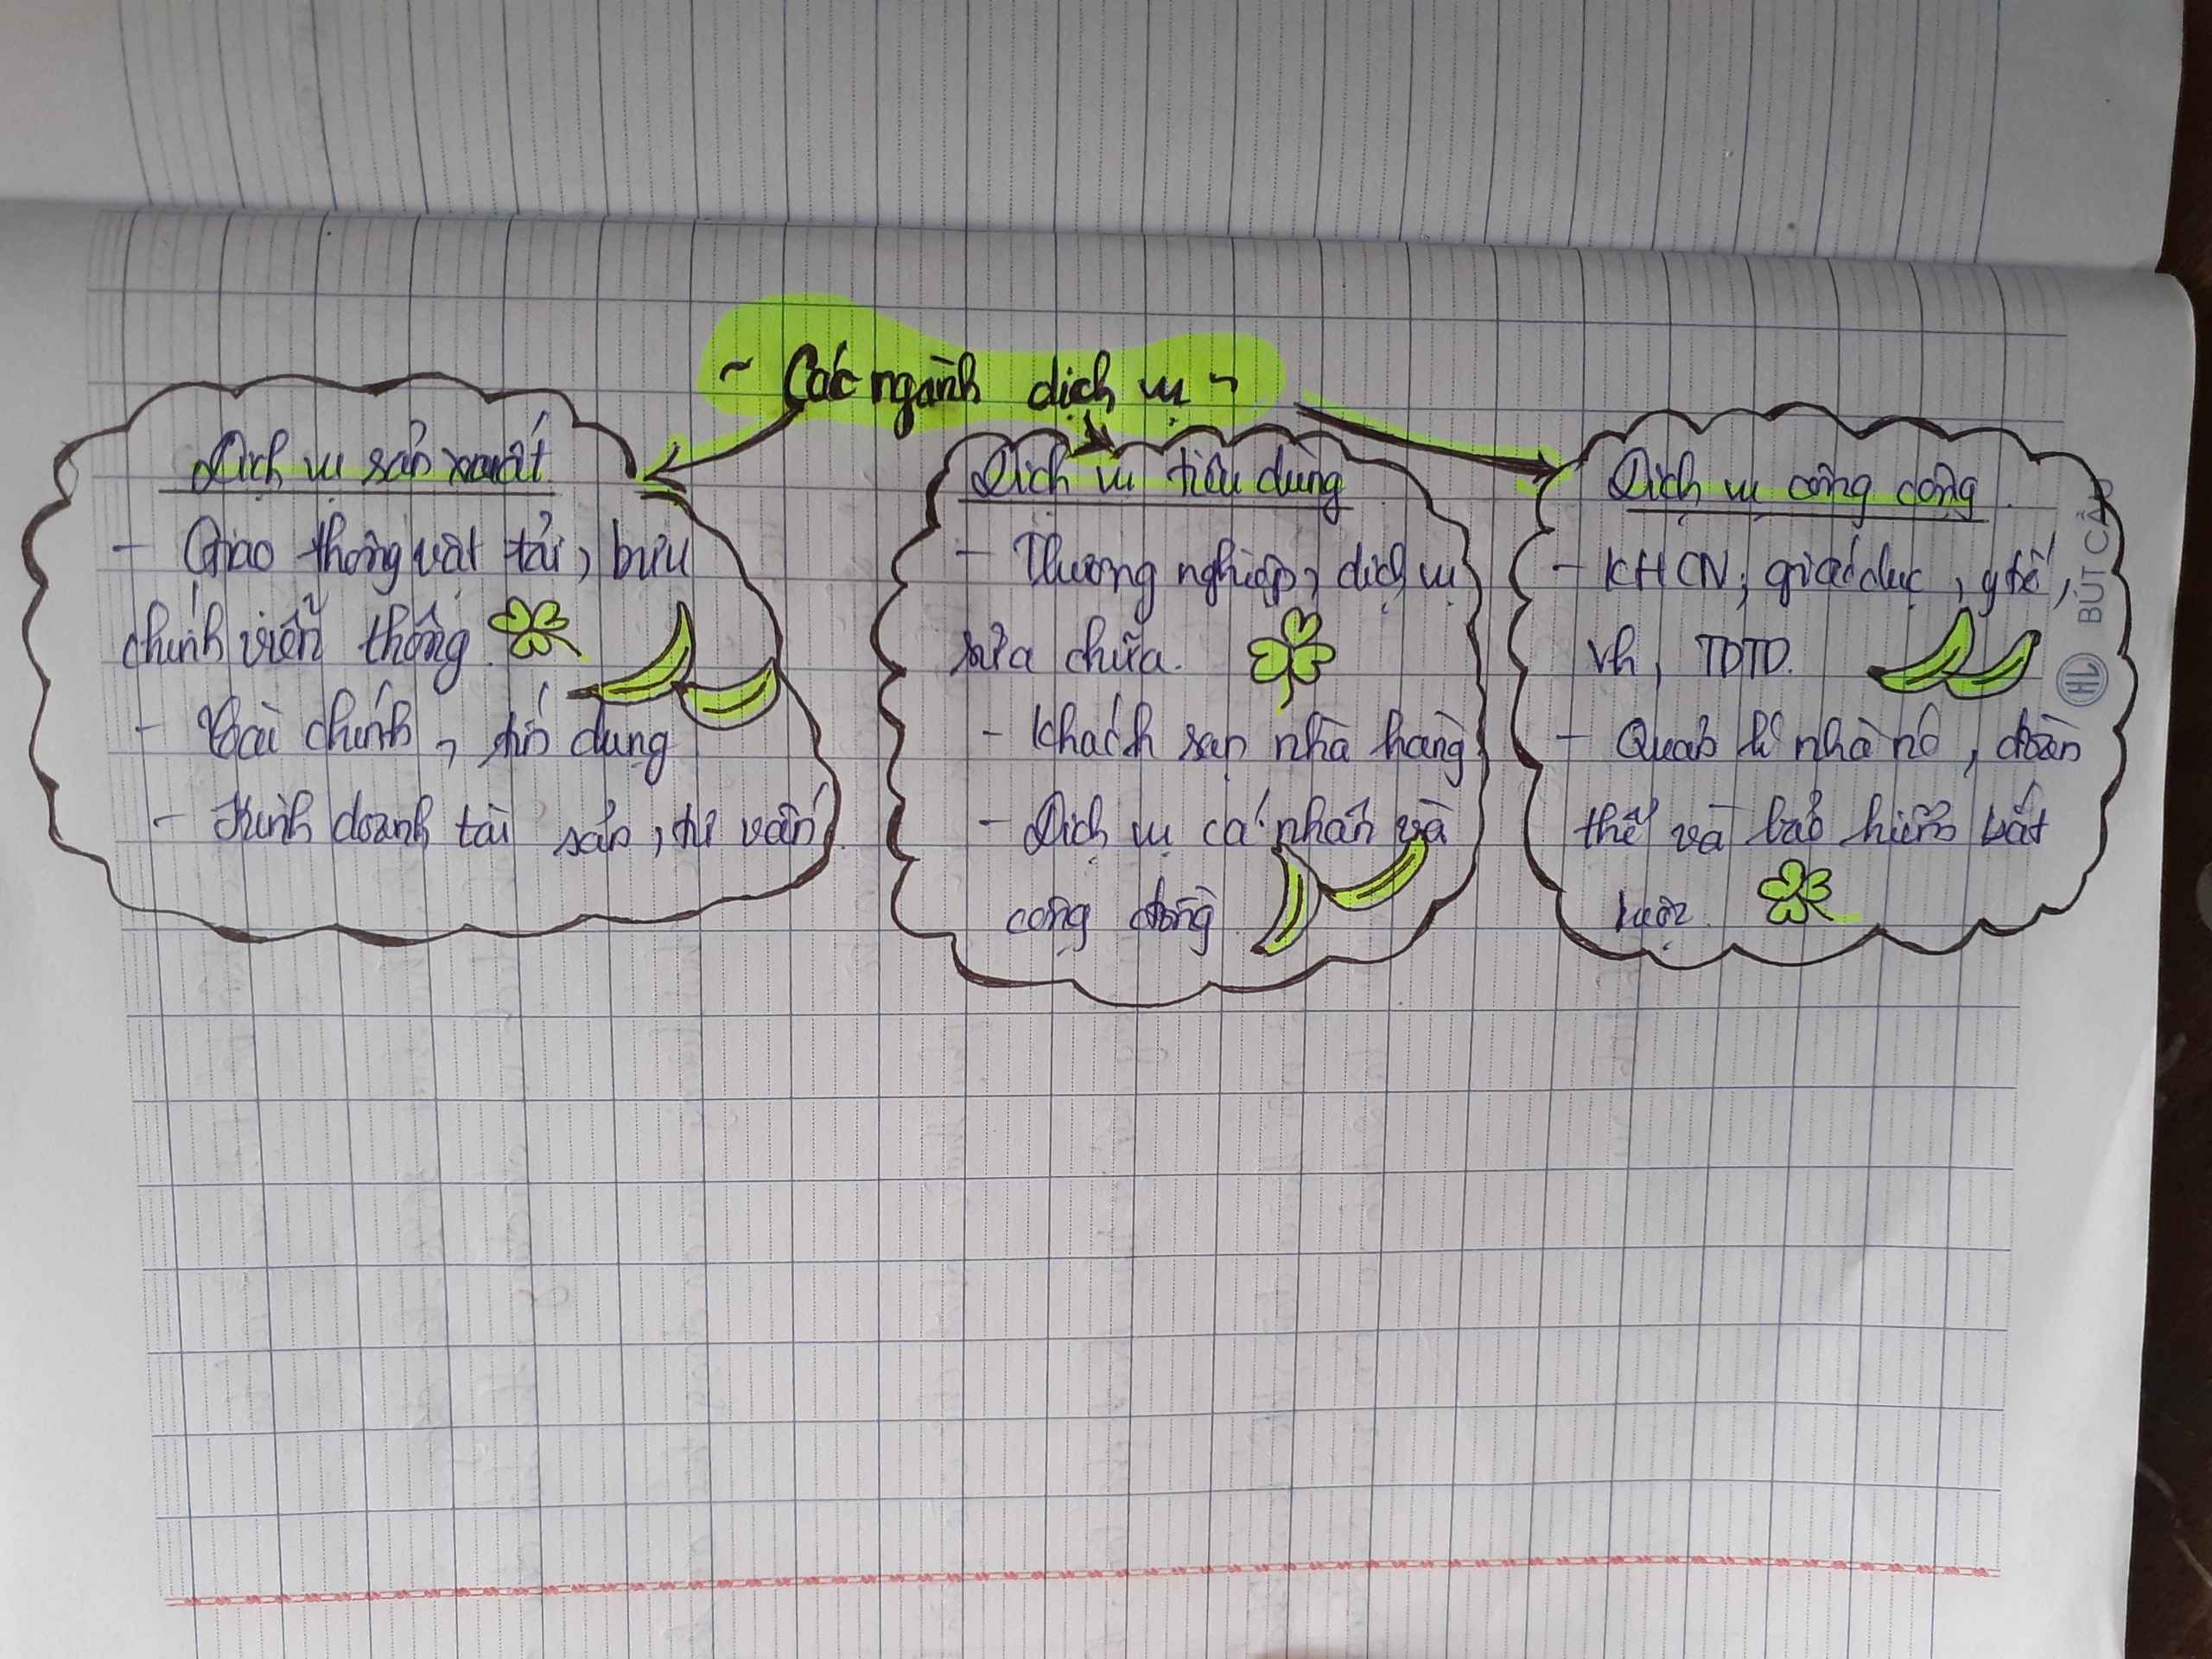 ~ Các ngành dịch vụ ~
Dịch vụ sản xuất
- Giao thông vận tải, bưu
chính viễn thông.
- Tài chính, tín dụng
- Kinh doanh tài sản, tư vấn.
Dịch vụ tiêu dùng
- Thương nghiệp, dịch vụ
sửa chữa.
- Khách sạn nhà hàng
- Dịch vụ cá nhân và
cộng đồng
Dịch vụ công cộng.
- KHCN, giáo dục, y tế,
vh, TDTD.
- Quản lí nhà nc, đoàn
thể và bảo hiểm bắt
buộc.
HL BÚT CẦ